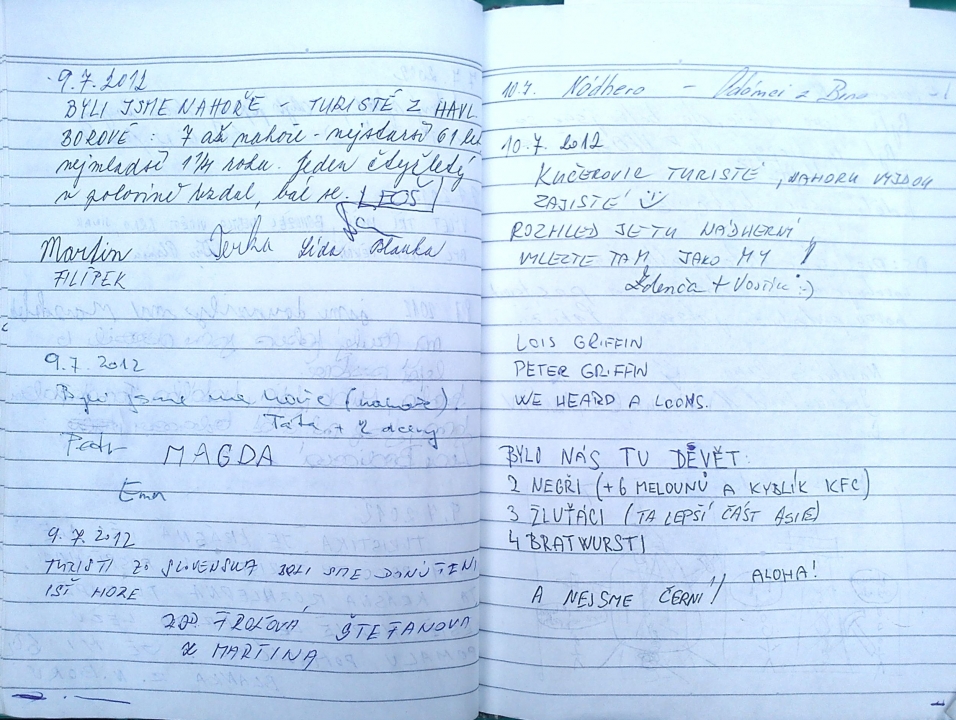 9.7.2012
BYLI JSME NAHOŘE - TURISTÉ Z HAVL.
BOROVÉ : 7 až nahoře - nejstarší 61 let
nejmladší 1 1/4 roku. Jeden čtyřletý
v polovině vzdal, bál se. LEOŠ
Martin Jerka Lída Blanka
FILÍPEK
9.7.2012
Byli jsme na hoře (nahoře).
Táta + 2 dcery
Petr MAGDA
Ema
9.7.2012
TURISTI ZO SLOVENSKA BOLI SME DONÚTENÍ
ÍSŤ HORE
ROD. FROĽOVÁ ŠTEFANOVÁ
Z MARTINA
10.7. Nádhera - z Brna
10.7.2012
KUČEROVIC TURISTÉ, NAHORU VYJDOU
ZAJISTÉ
ROZHLED JE TU NÁDHERNÝ,
VYLEZTE TAM JAKO MY !
Zdenča + Vojtík :-)
LOIS GRIFFIN
PETER GRIFFIN
WE HEARD A LOOMS.
BYLO NÁS TU DEVĚT:
2 NEGŘI (+6 MELOUNŮ A KYBLÍK KFC)
3 ŽLUŤÁCI (TA LEPŠÍ ČÁST ASIE)
4 BRATWURSTI
ALOHA!
A NEJSME ČERNÍ!